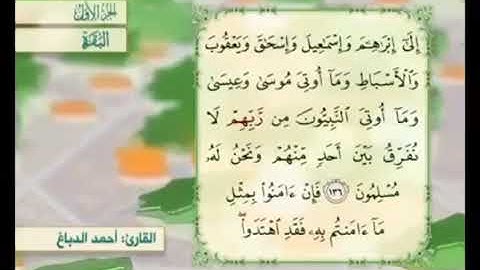 الجزء الأول
البقرة
إِلَىٰٓ إِبْرَٰهِـۧمَ وَإِسْمَٰعِيلَ وَإِسْحَٰقَ وَيَعْقُوبَ
وَٱلْأَسْبَاطِ وَمَآ أُوتِىَ مُوسَىٰ وَعِيسَىٰ
وَمَآ أُوتِىَ ٱلنَّبِيُّونَ مِن رَّبِّهِمْ لَا
نُفَرِّقُ بَيْنَ أَحَدٍ مِّنْهُمْ وَنَحْنُ لَهُۥ
مُسْلِمُونَ ١٣٦ فَإِنْ ءَامَنُوا۟ بِمِثْلِ
مَآ ءَامَنتُم بِهِۦ فَقَدِ ٱهْتَدَوا۟ ۖ
القارئ: أحمد الدباغ